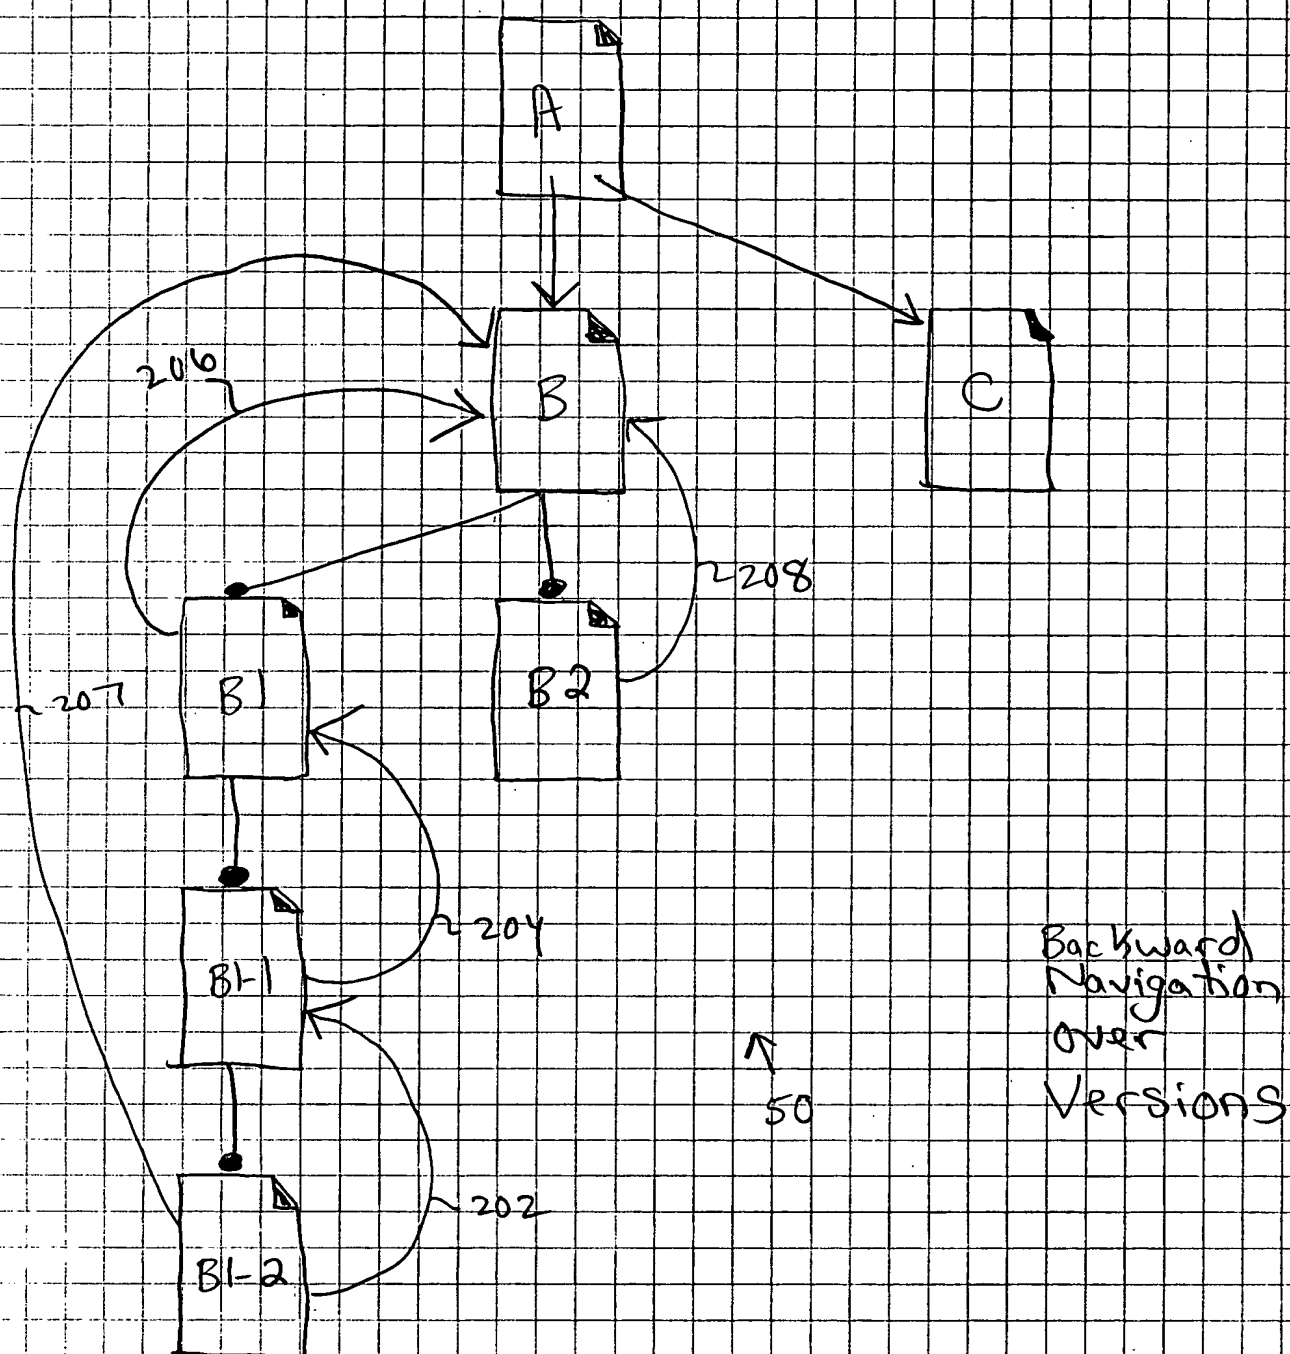 A
206
B
C
208
B1
B2
207
204
B1-1
Backward
Navigation
over
Versions
50
202
B1-2